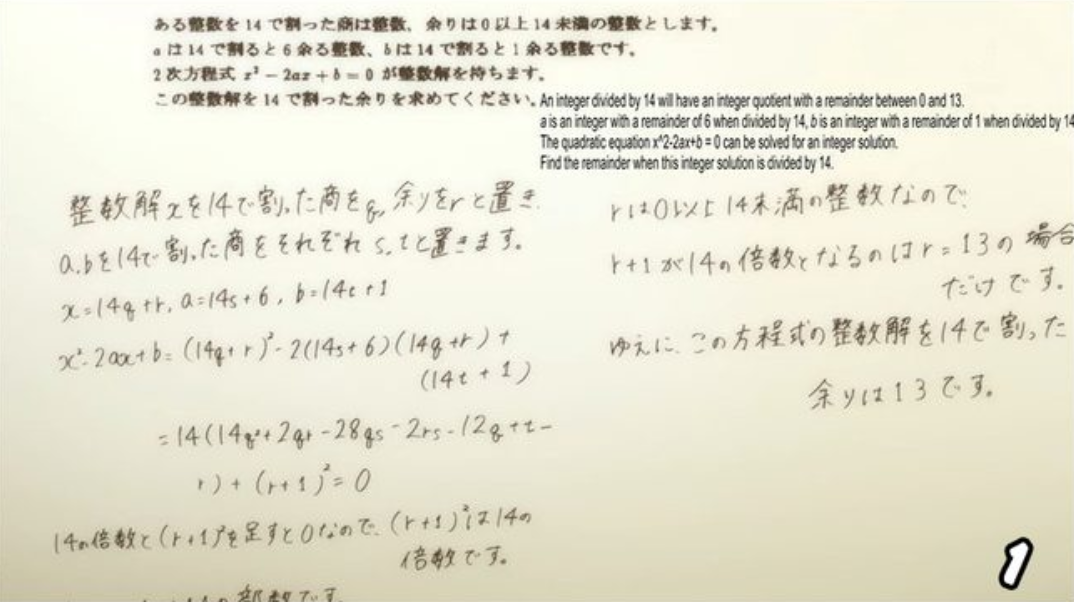 ある整数を14で割った商は整数、余りは0以上14未満の整数とします。
aは14で割ると6余る整数、bは14で割ると1余る整数です。
2次方程式 x² − 2ax + b = 0 が整数解を持ちます。
この整数解を14で割った余りを求めてください。
An integer divided by 14 will have an integer quotient with a remainder between 0 and 13.
a is an integer with a remainder of 6 when divided by 14, b is an integer with a remainder of 1 when divided by 14
The quadratic equation x^2-2ax+b = 0 can be solved for an integer solution.
Find the remainder when this integer solution is divided by 14.
整数解xを14で割った商をq、余りをrと置き、
a,bを14で割った商をそれぞれs,tと置きます。
x=14q+r, a=14s+6, b=14t+1
x²-2ax+b=(14q+r)²-2(14s+6)(14q+r)+
(14t+1)
=14(14q²+2qr-28qs-2rs-12q+t-
r)+(r+1)²=0
14の倍数と(r+1)²を足すと0なので、(r+1)²は14の
倍数です。
rは0以上14未満の整数なので、
r+1が14の倍数となるのはr=13の場合
だけです。
ゆえに、この方程式の整数解を14で割った
余りは13です。
1